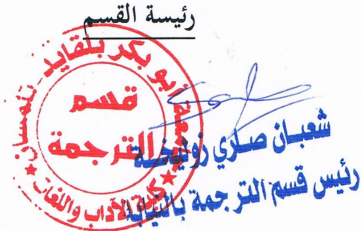 رئيسة القسم
أبو بكر بلقايد - تلمسان
قسم
الترجمة
كلية الآداب واللغات
شعبان صاري زوليخة
رئيس قسم الترجمة بالنيابة